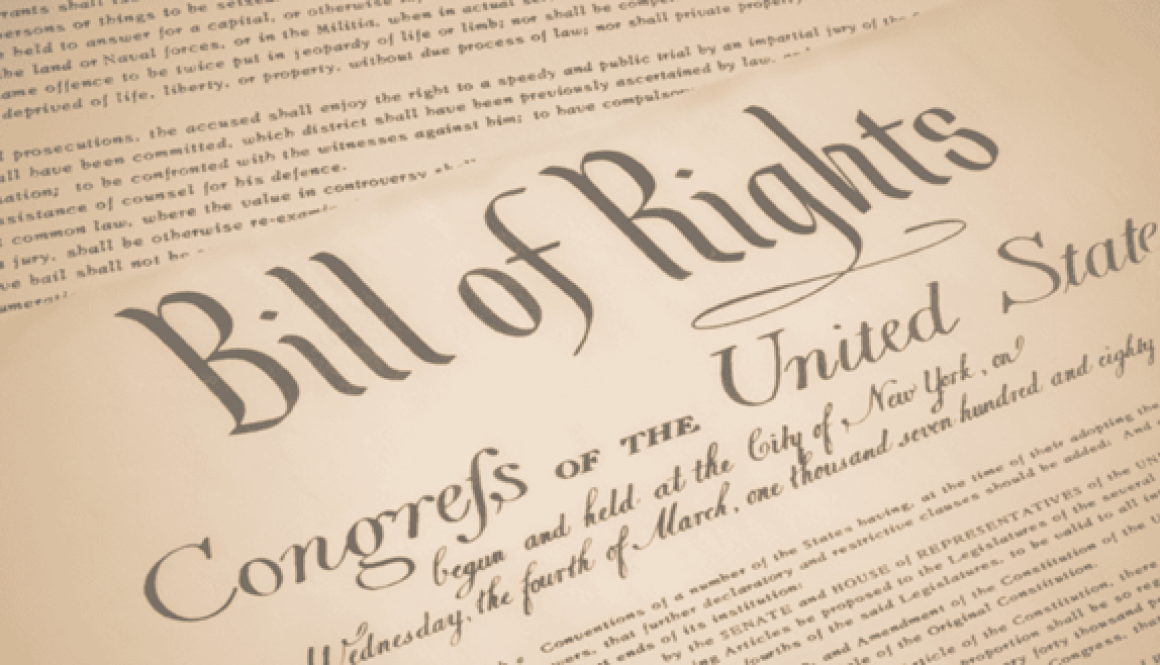 rants shall
persons or things to be seized.
held to answer for a capital, or otherwise
he land or Naval forces, or in the Militia, when in actual
ame offence to be twice put in jeopardy of life or limb; nor shall be
deprived of life, liberty, or property, without due process of law; nor shall private property
prosecutions, the accused shall enjoy the right to a speedy and public trial by an impartial jury of the
all have been committed, which district shall have been previously ascertained by law,
ation; to be confronted with the witnesses against him; to have compulsor
ssistance of counsel for his defence.
common law, where the value in controversy shall
jury, shall be otherwise re-exami
ve bail shall not be
umerati
Bill of Rights
Congreſs OF THE United State
begun and held at the City of New York, on
Wednesday, the fourth of March, one thousand seven hundred and eighty
Conventions of a number of the States having, at the time of their adopting the
wers, that further declaratory and restrictive clauses should be added: And
ends of its institution:
by the SENATE and HOUSE of REPRESENTATIVES of the UN
ing Articles be proposed to the Legislatures of the several
fourths of the said Legislatures, to be valid to all
and Amendment of the Constitution of the U
le of the Original Constitution.
rticle of the Constitution, there
proportion shall be so reg
forty thousand
Congress, that